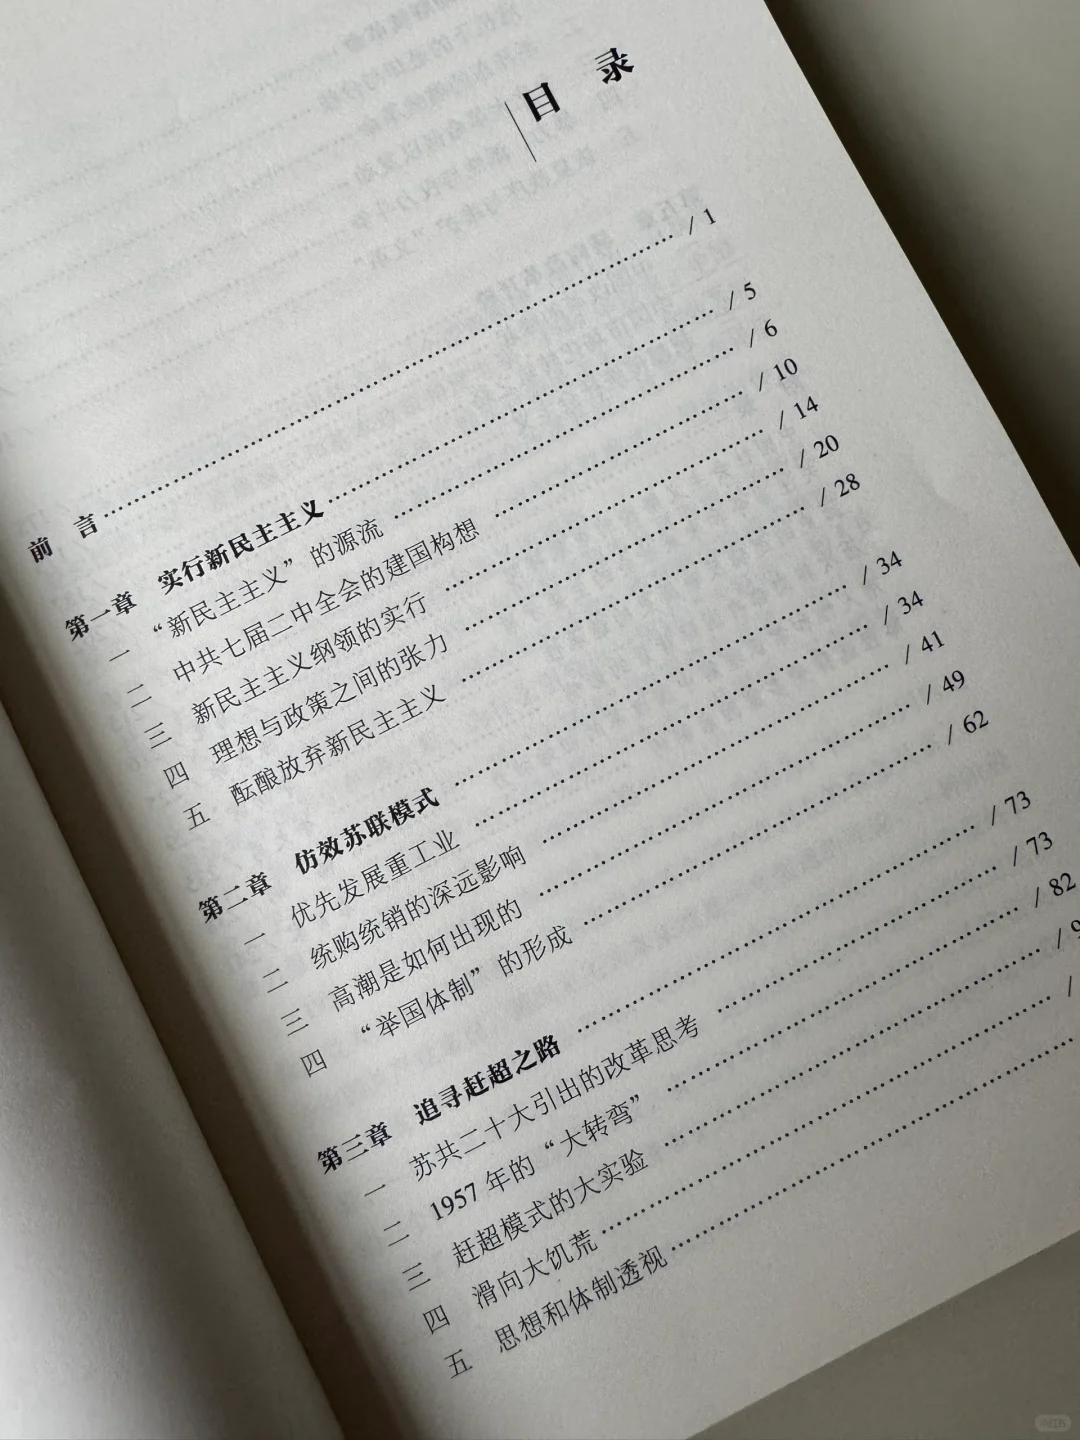 目 录
前 言 / 1
第一章 实行新民主主义 / 5
一 “新民主主义”的源流 / 6
二 中共七届二中全会的建国构想 / 10
三 新民主主义纲领的实行 / 14
四 理想与政策之间的张力 / 20
五 酝酿放弃新民主主义 / 28
第二章 仿效苏联模式 / 34
一 优先发展重工业 / 34
二 统购统销的深远影响 / 41
三 高潮是如何出现的 / 49
四 “举国体制”的形成 / 62
第三章 追寻赶超之路 / 73
一 苏共二十大引出的改革思考 / 73
二 1957 年的“大转弯” / 82
三 赶超模式的大实验 / 9
四 滑向大饥荒 /
五 思想和体制透视